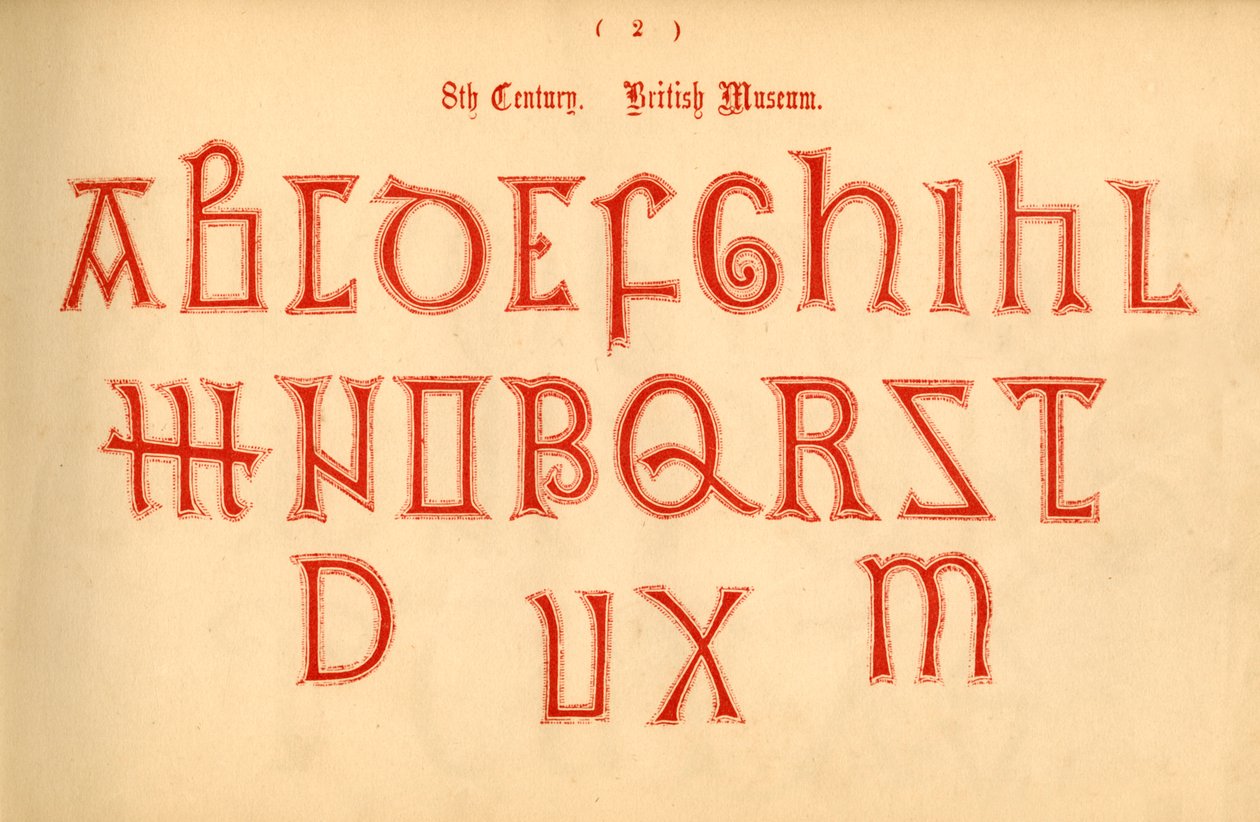 ( 2 )
8th Century. British Museum.
A B C D E F G h I K L
M N O P Q R S T
D U X M